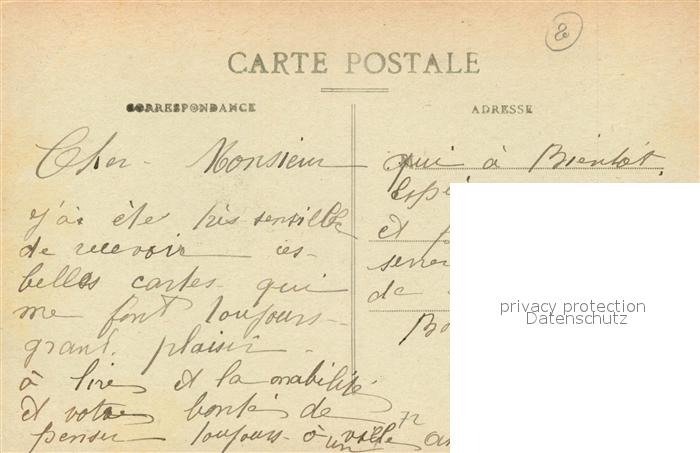 8
CARTE POSTALE
CORRESPONDANCE
ADRESSE
Cher Monsieur
j'ai été très sensible
de recevoir ces
belles cartes qui
me font toujours
grand plaisir
à lire et la
et votre bonté de
penser toujours à
qui à Bientôt
Espé
et
serrer
de
Bo
privacy protection
Datenschutz